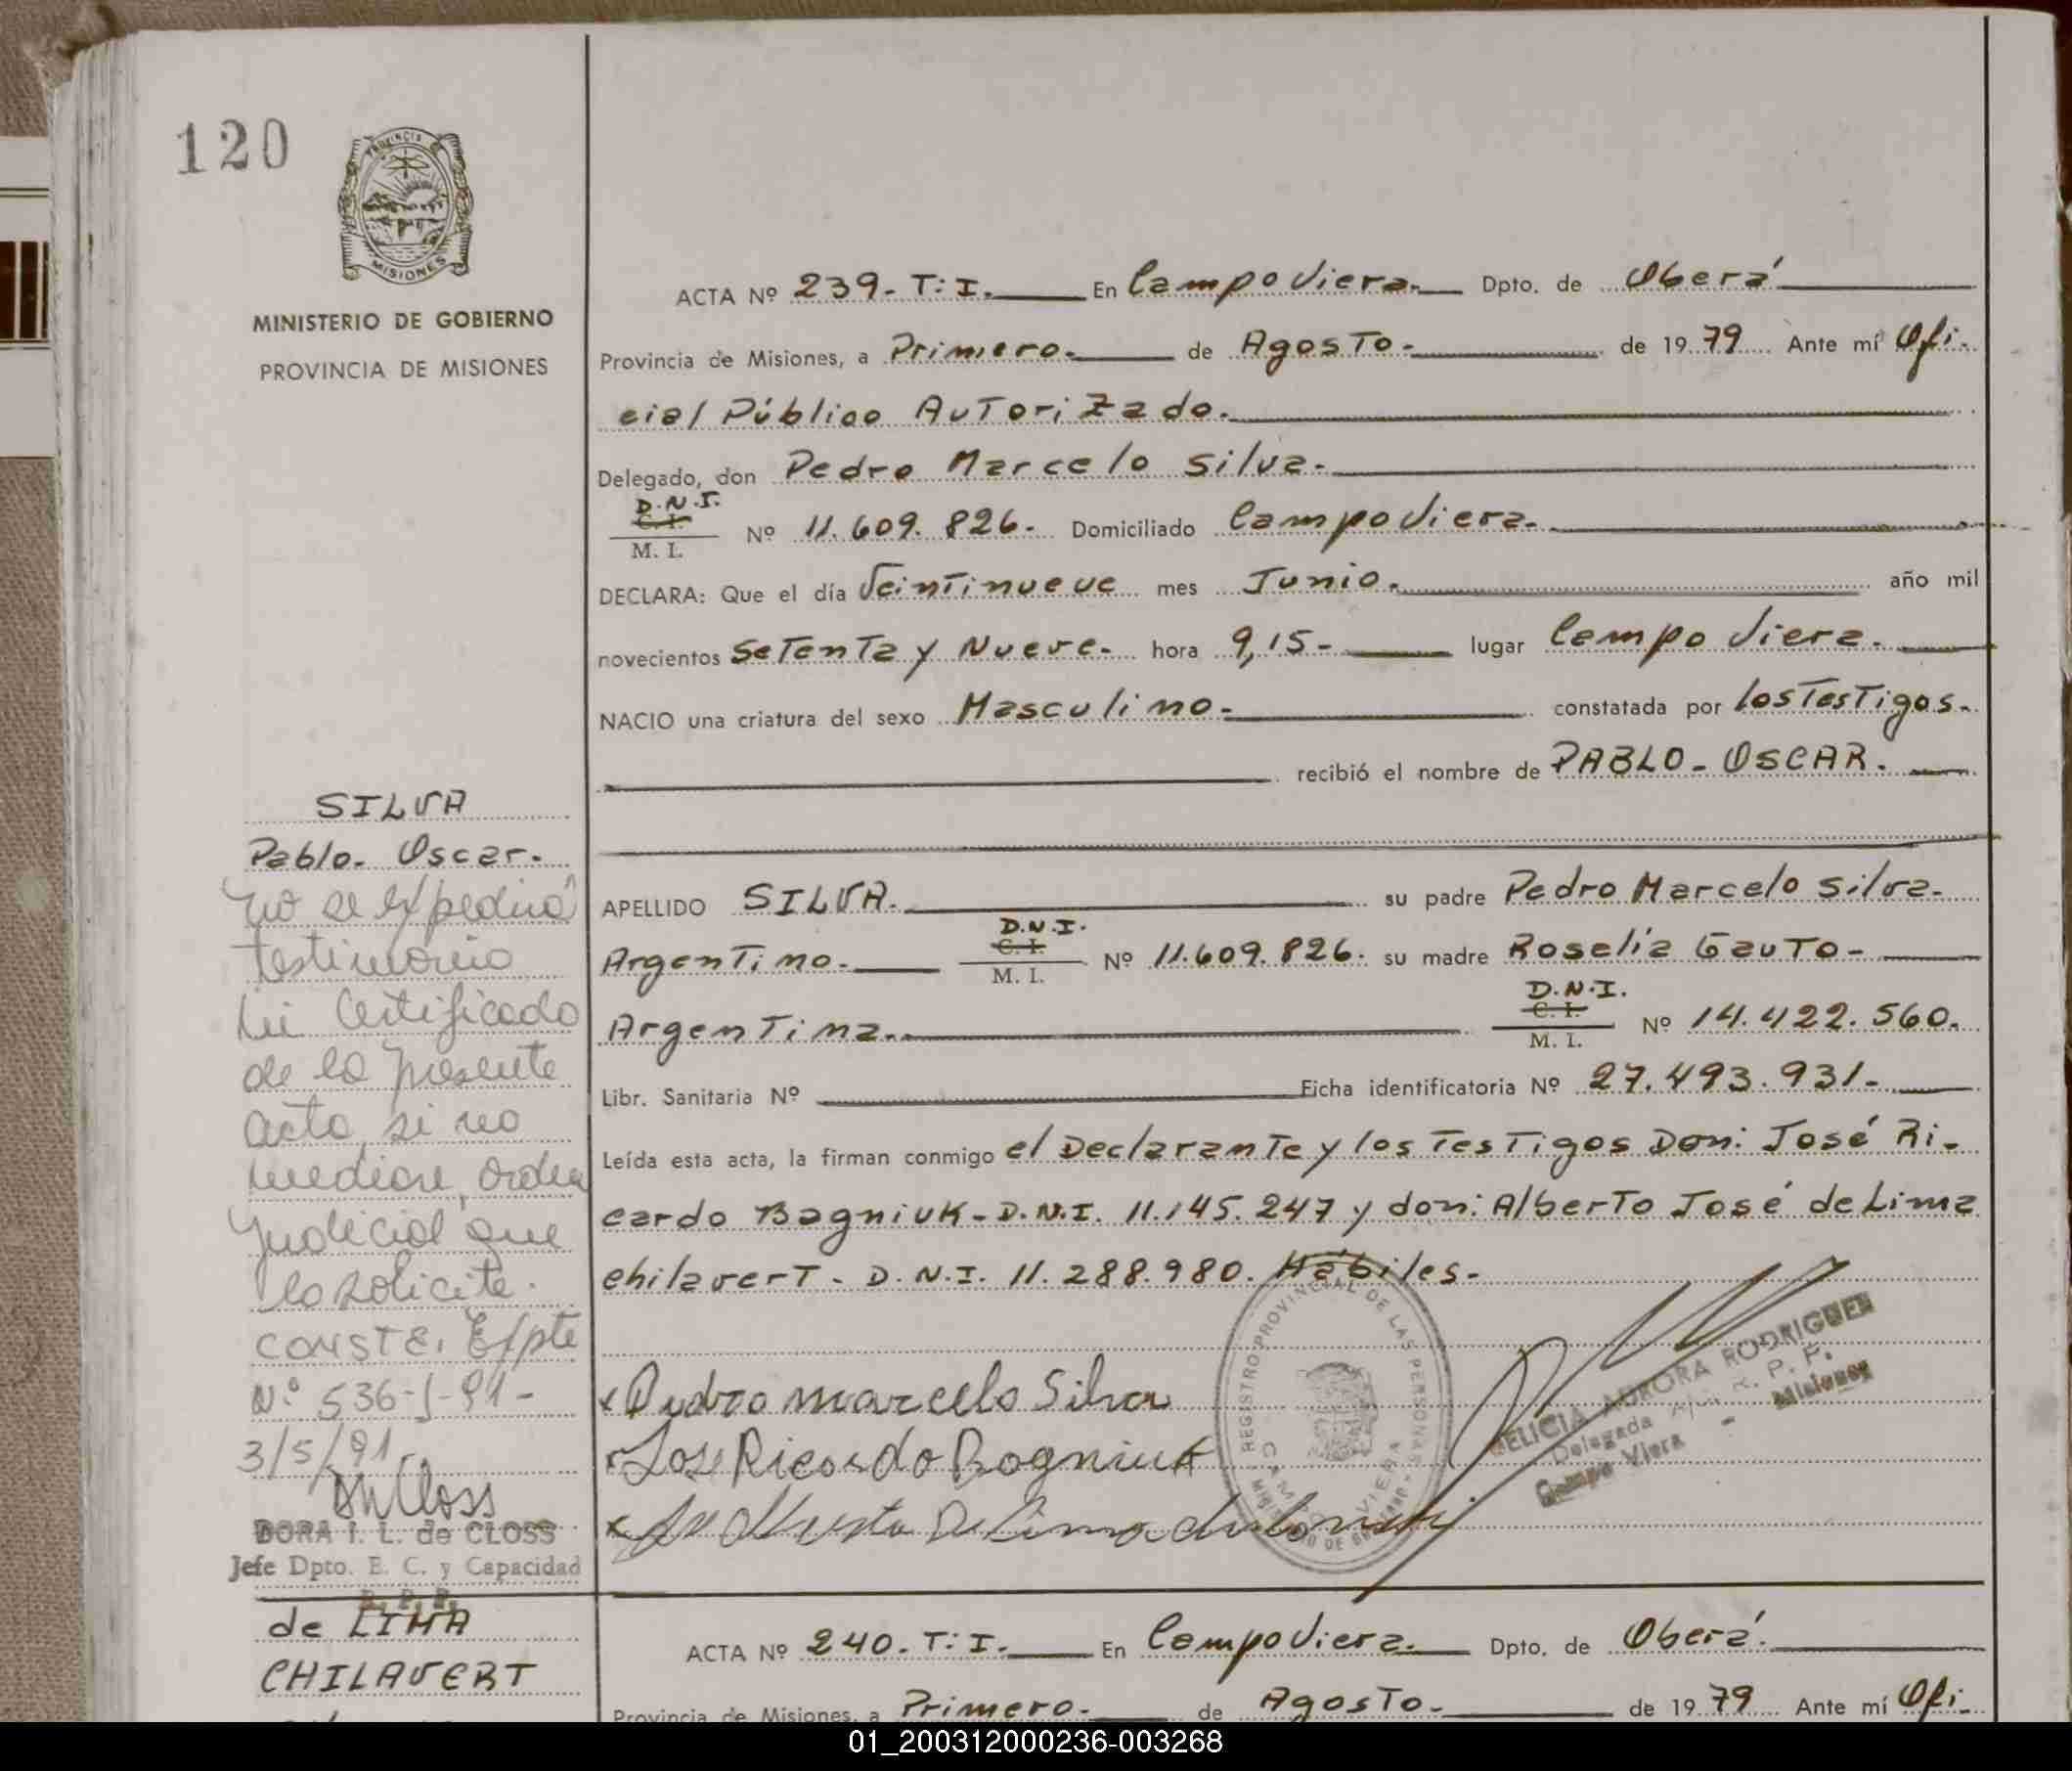 120
PROVINCIA
MISIONES
MINISTERIO DE GOBIERNO
PROVINCIA DE MISIONES
SILVA
Pablo. Oscar.
No se expedirá
testimonio
ni Certificado
de la presente
acta, si no
mediare, orden
Judicial que
lo solicite.
CONSTE. Expte
N.º 536-J-91-
3/5/91
DORA I. L. de CLOSS
Jefe Dpto. E. C. y Capacidad
R. P. P.
de LIMA
CHILAVERT
ACTA Nº 239. T: I. En Campo Viera. Dpto. de Oberá
Provincia de Misiones, a Primero. de Agosto. de 19 79 Ante mí Ofi-
cial Público Autorizado.
Delegado, don Pedro Marcelo Silva.
D.N.I.
C. I.
M. I. Nº 11.609.826. Domiciliado Campo Viera.
DECLARA: Que el día Veintinueve mes Junio. año mil
novecientos Setenta y Nueve. hora 9,15- lugar Campo Viera.
NACIO una criatura del sexo Masculino. constatada por los Testigos.
recibió el nombre de PABLO- OSCAR.
APELLIDO SILVA. su padre Pedro Marcelo Silva.
Argentino. D.N.I. C. I. M. I. Nº 11.609.826. su madre Roselia Gauto-
Argentina. D.N.I. C. I. M. I. Nº 14.422.560.
Libr. Sanitaria Nº Ficha identificatoria Nº 27.493.931.
Leída esta acta, la firman conmigo el Declarante y los Testigos Don: José Ri-
cardo Bagniuk- D.N.I. 11.145.247 y don: Alberto José de Lima
chilavert- D.N.I. 11.288.980. Hábiles.
Pedro Marcelo Silva
Jose Ricardo Bogniuk
REGISTRO PROVINCIAL DE LAS PERSONAS
CAMPO VIERA
MINISTERIO DE GOBIERNO
FELICIA AURORA RODRIGUEZ
Delegada R. P. P.
Campo Viera - Misiones
ACTA Nº 240. T: I. En Campo Viera. Dpto. de Oberá.
Provincia de Misiones, a Primero. de Agosto. de 19 79 Ante mí Ofi-
01_200312000236-003268